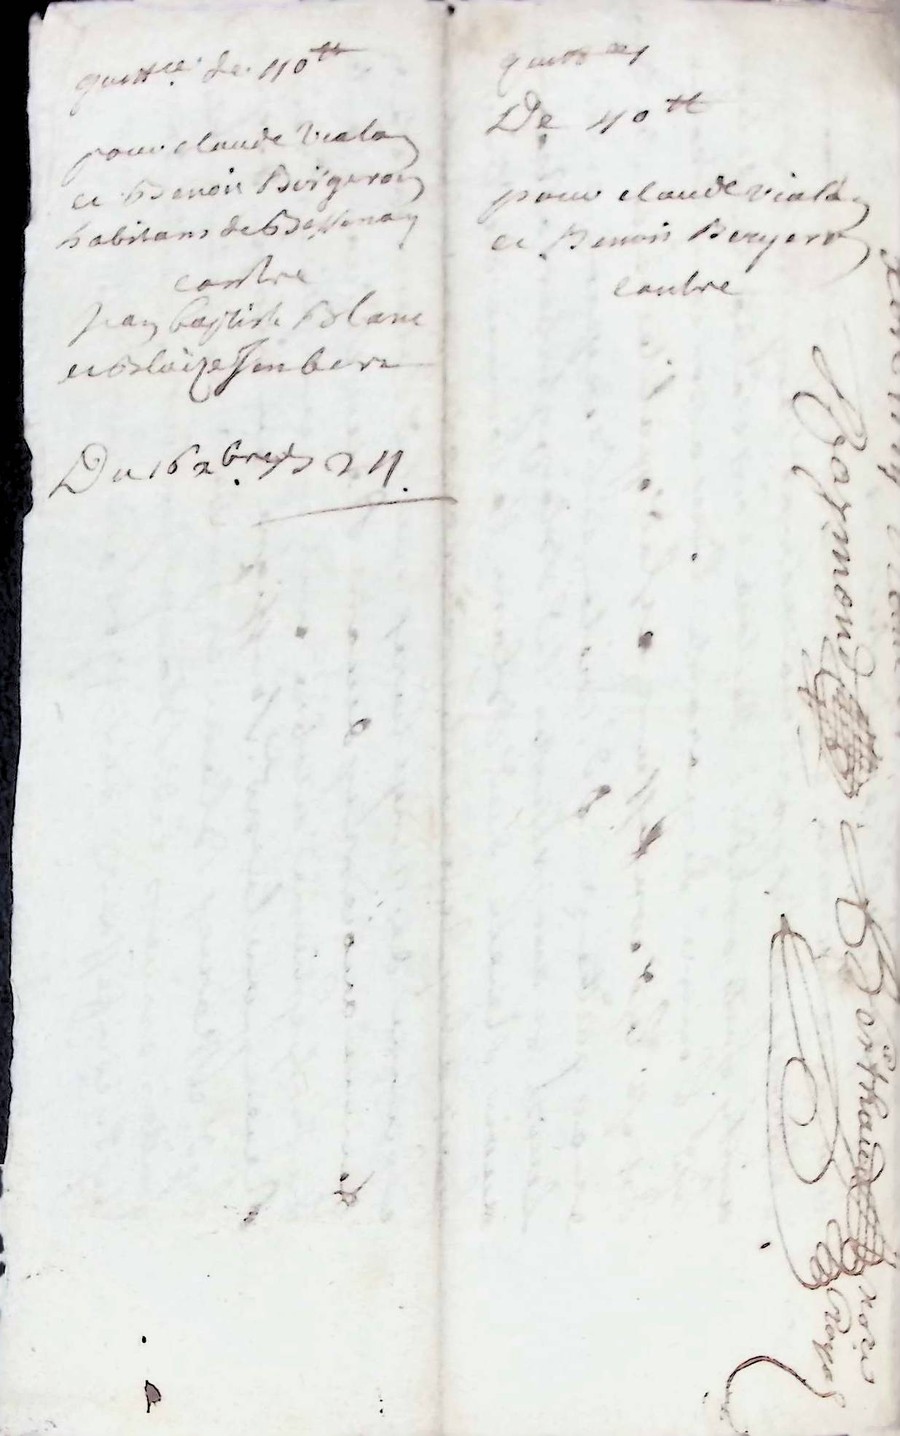 quitt.ce de 40tt
pour claude Vialon
et Benoit Bergeron
habitans de Bessenay
contre
Jean baptiste Blanc
et Blaize Jmbert
Du 16 xbre 1724.
quittce
De 40tt
pour claude vialon
et Benoit Bergeron
contre
Raymond
Berthaud
Royal